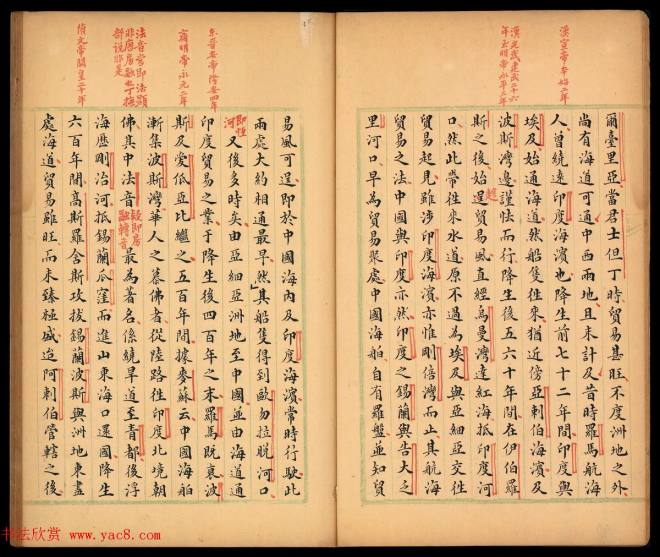 漢宣帝本始二年
漢光武建武二十六
年至明帝永平三年
爾臺里亞當君士但丁時貿易甚旺不度洲地之外
尚有海道可通中西兩地且未計及昔時羅馬航海
人曾繞遠印度海濱也降生前七十二年間印度與
埃及始通海道然船隻往來猶近傍亞剌伯海濱及
波斯灣邊謹怯而行降生後五六十年間在伊伯羅
斯之後始趁貿易風直經烏曼灣達紅海抵印度河
口然此帶往來水道原不過為埃及與亞細亞交往
貿易起見雖涉印度海濱亦惟剛倍灣而止其航海
貿易之法中國與印度亦然印度之錫蘭與告大之
里河口早為貿易聚處中國海舶自有羅盤並知貿
東晉安帝隆安四年
齊明帝永元二年
法音當即法顯
非唐房融也丁據
部說非是
隋文帝開皇二十年
易風可逕即於中國海內及印度海濱常時行駛此
兩處大約相通最早然其船隻得到歐勿拉脫河口
即恒河
又後多時矣由亞細亞洲地至中國並由海道通
印度貿易之業于降生後四百年之末羅馬既衰波
斯及愛低亞比繼之五百年間據麥蘇云中國海舶
漸集波斯灣華人之慕佛者從陸路往印度北境朝
佛其中法音
疑即房
融轉音
最為著名係繞旱道至青都後浮
海歷剛治河抵錫蘭瓜窪而進山東海口還國降生
六百年間高斯羅舍斯攻拔錫蘭波斯與洲地東盡
處海道貿易雖旺而未臻極盛迨阿剌伯管轄之後
书法欣赏
www.yac8.com